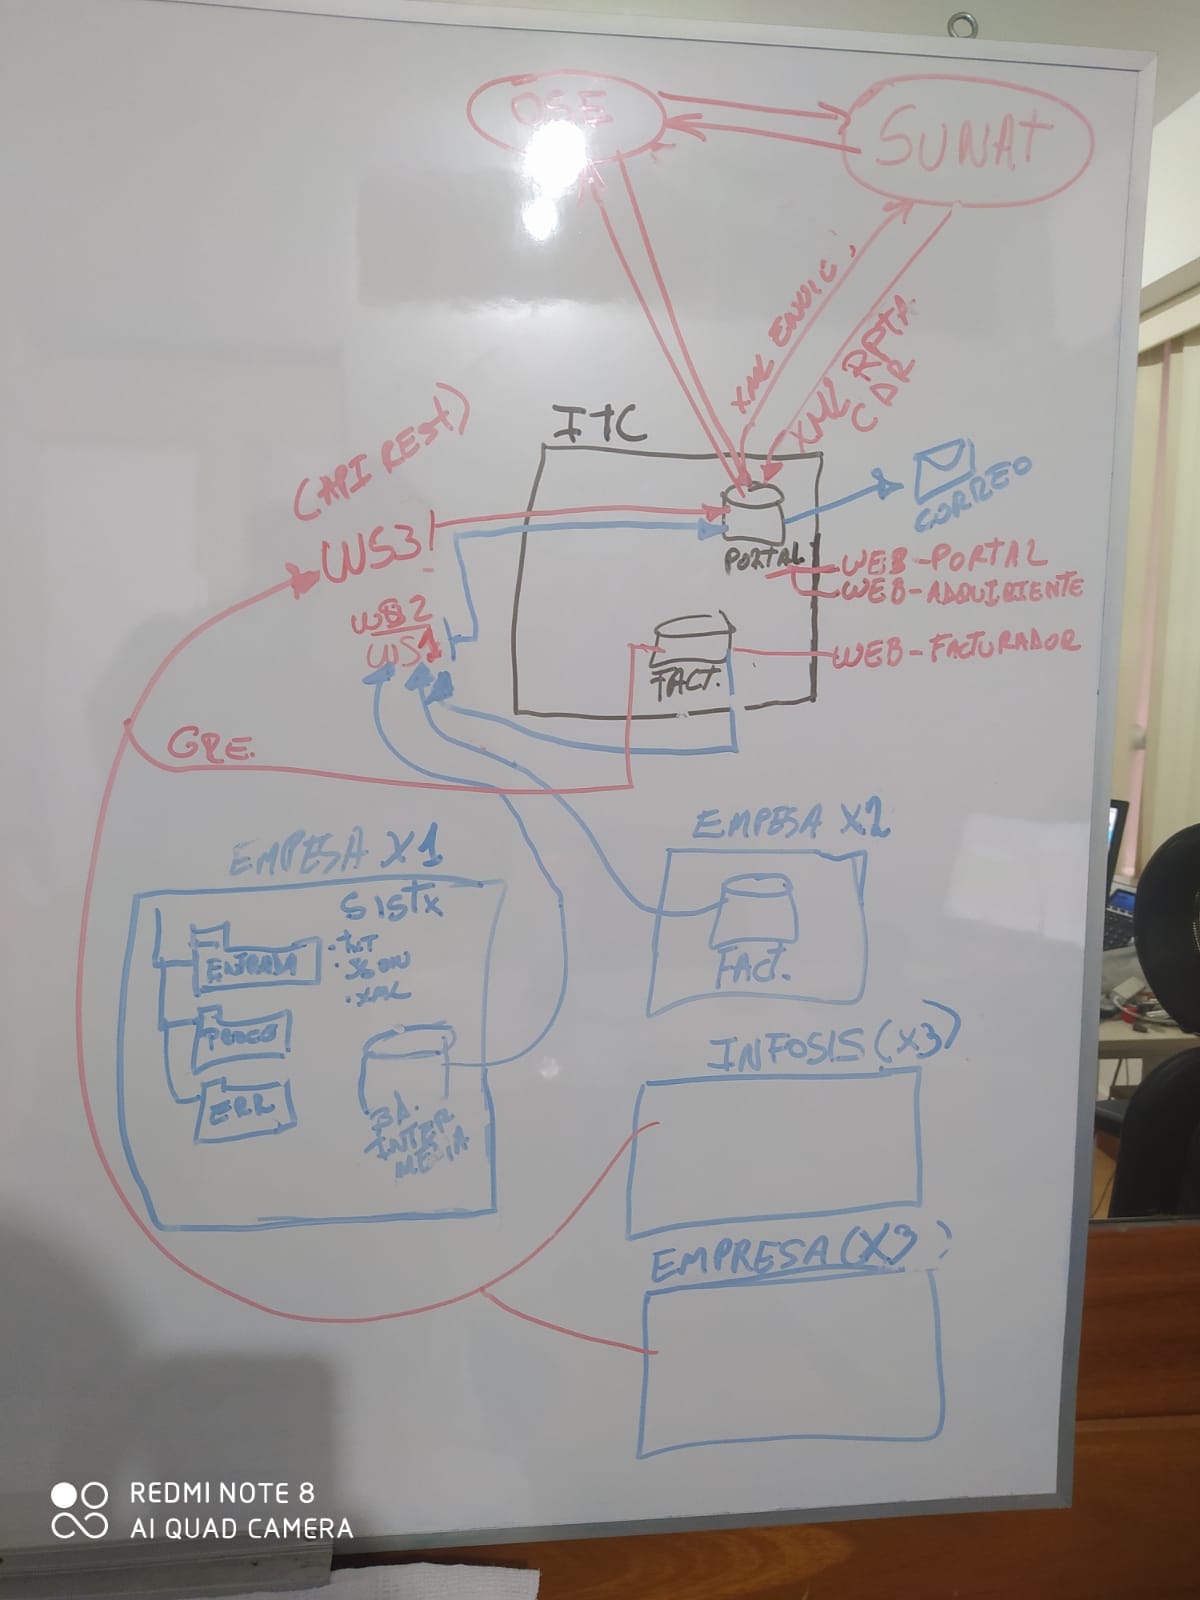 OSE
SUNAT
XML ENVIO
XML RPTA.
CDR
ITC
(API REST)
WS3
CORREO
PORTAL
WEB-PORTAL
WEB-ADQUIRIENTE
WS2
WS1
FACT.
WEB-FACTURADOR
GRE.
EMPESA X1
SISTX
.TXT
.JSON
.XML
ENTRADA
ERR
BD.
INTER
MEDIA
EMPESA X2
FACT.
INFOSIS (X3)
EMPRESA (X3)
REDMI NOTE 8
AI QUAD CAMERA